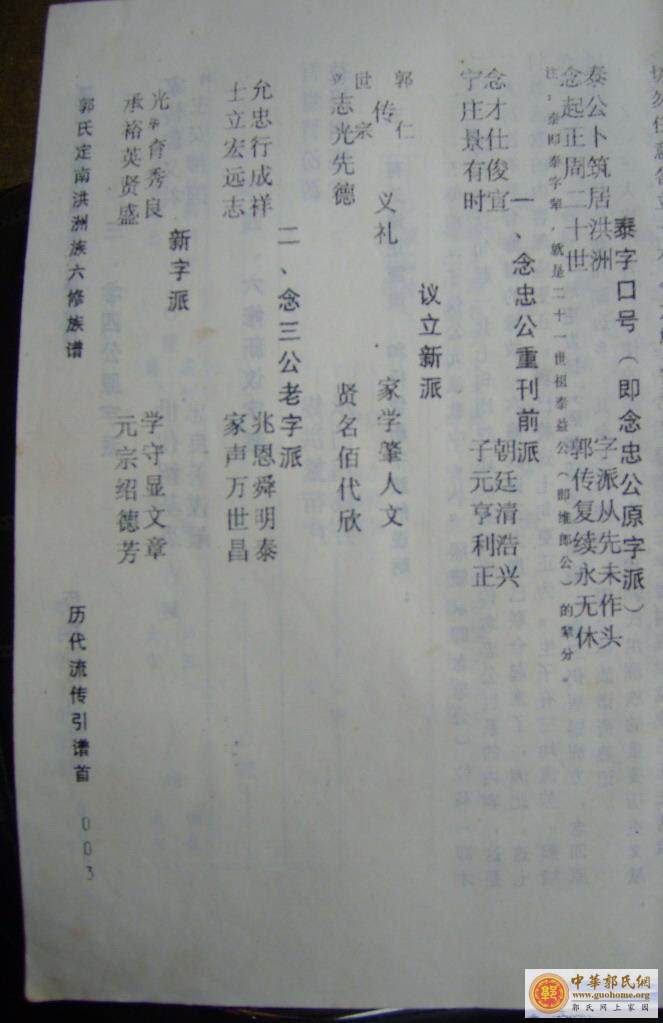 泰字口号（即念忠公原字派）
泰公卜筑居洪洲 字派从先未作头
念起正周二十世 郭传复续永无休
注：泰即泰字辈，就是二十一世祖泰益公（即维郎公）的辈分。
一、念忠公重刊前派
念才仕俊宜 朝廷清浩兴
宁庄景有时 子元亨利正
议立新派
郭 仁
传 义礼 家学肇人文
世宗
立志光先德 贤名佰代欣
二、念三公老字派
允忠行成祥 兆恩舜明泰
士立宏远志 家声万世昌
新字派
光华育秀良 学守显文章
承裕英贤盛 元宗绍德芳
郭氏定南洪洲族六修族谱 历代流传引谱首 003
中華郭氏網
www.guohome.org
郭氏网上家园